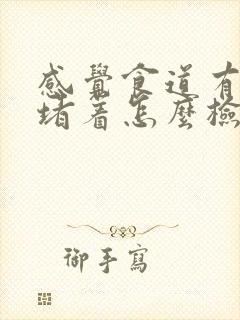 感覺食道有
堵着怎麼檢
御手寫